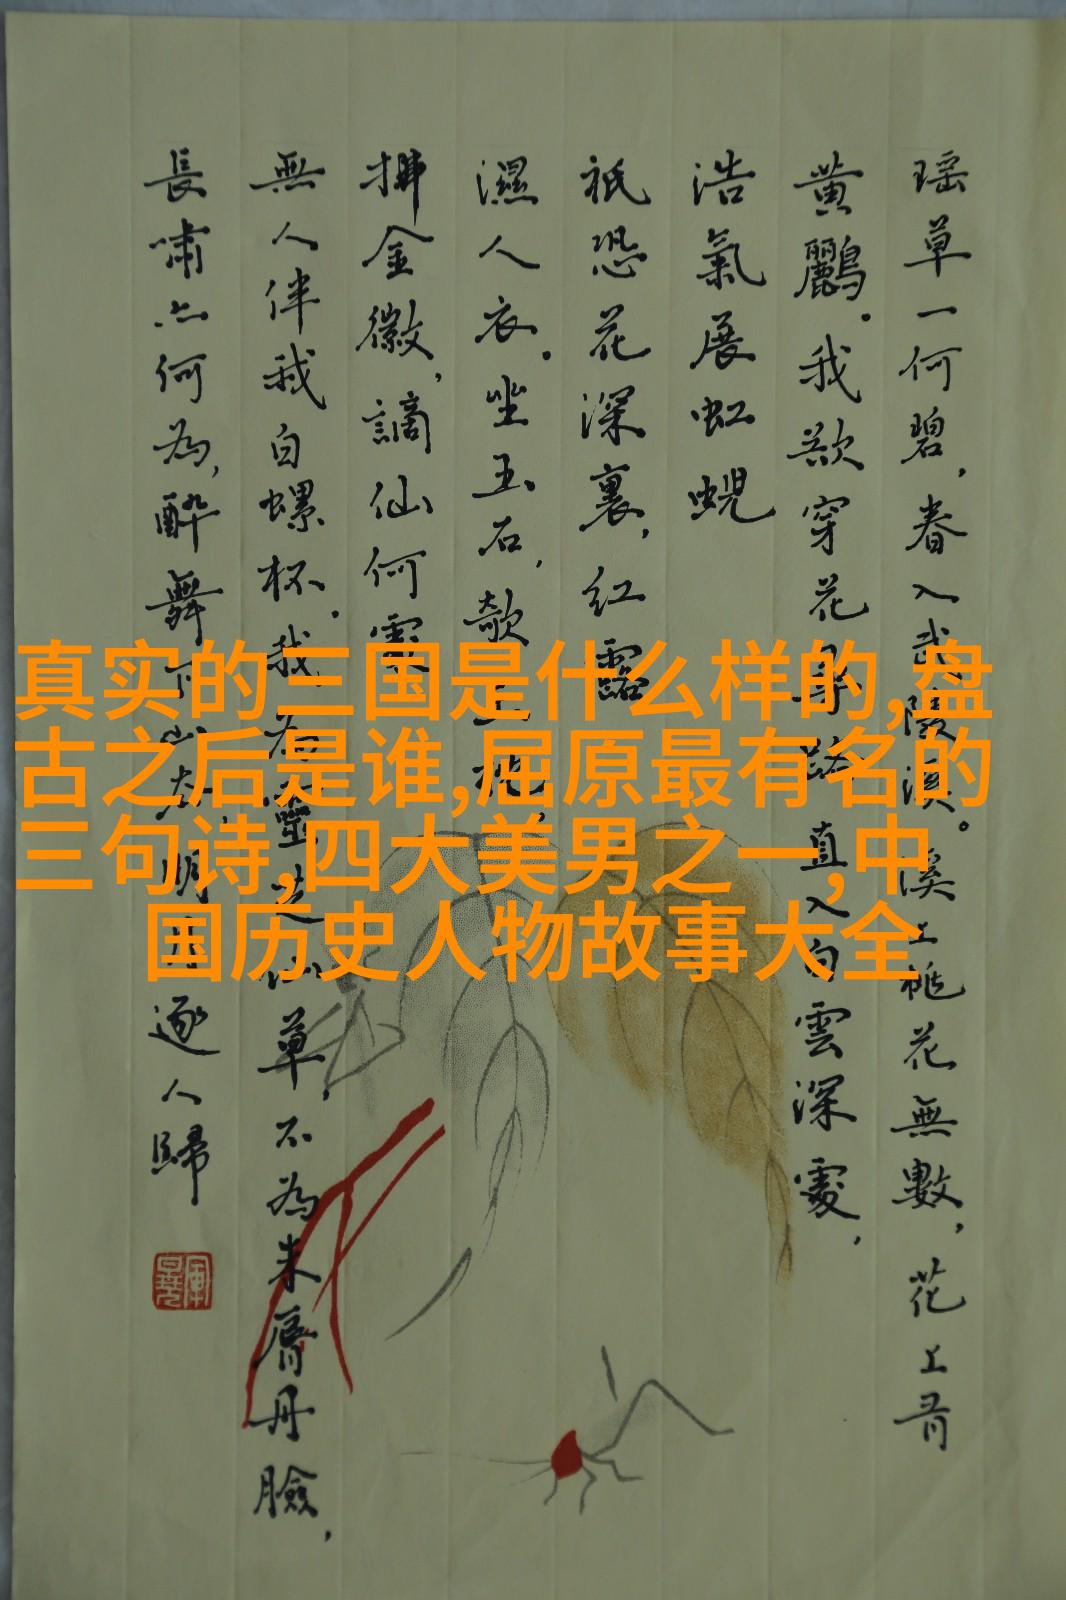 瑶草一何碧，春入武陵溪。溪上桃花無數，花上有
黄鸝。我欲穿花尋路，直入白雲深處，
浩氣展虹蜺
祇恐花深裏，紅露
濕人衣。坐玉石，欹玉枕，
拂金徽，謫仙何處
無人伴我白螺杯。我為靈芝仙草，不為朱脣丹臉，
長嘯亦何為，醉舞下山去，明月逐人歸
真实的三国是什么样的,盘
古之后是谁,屈原最有名的
三句诗,四大美男之一,中
国历史人物故事大全